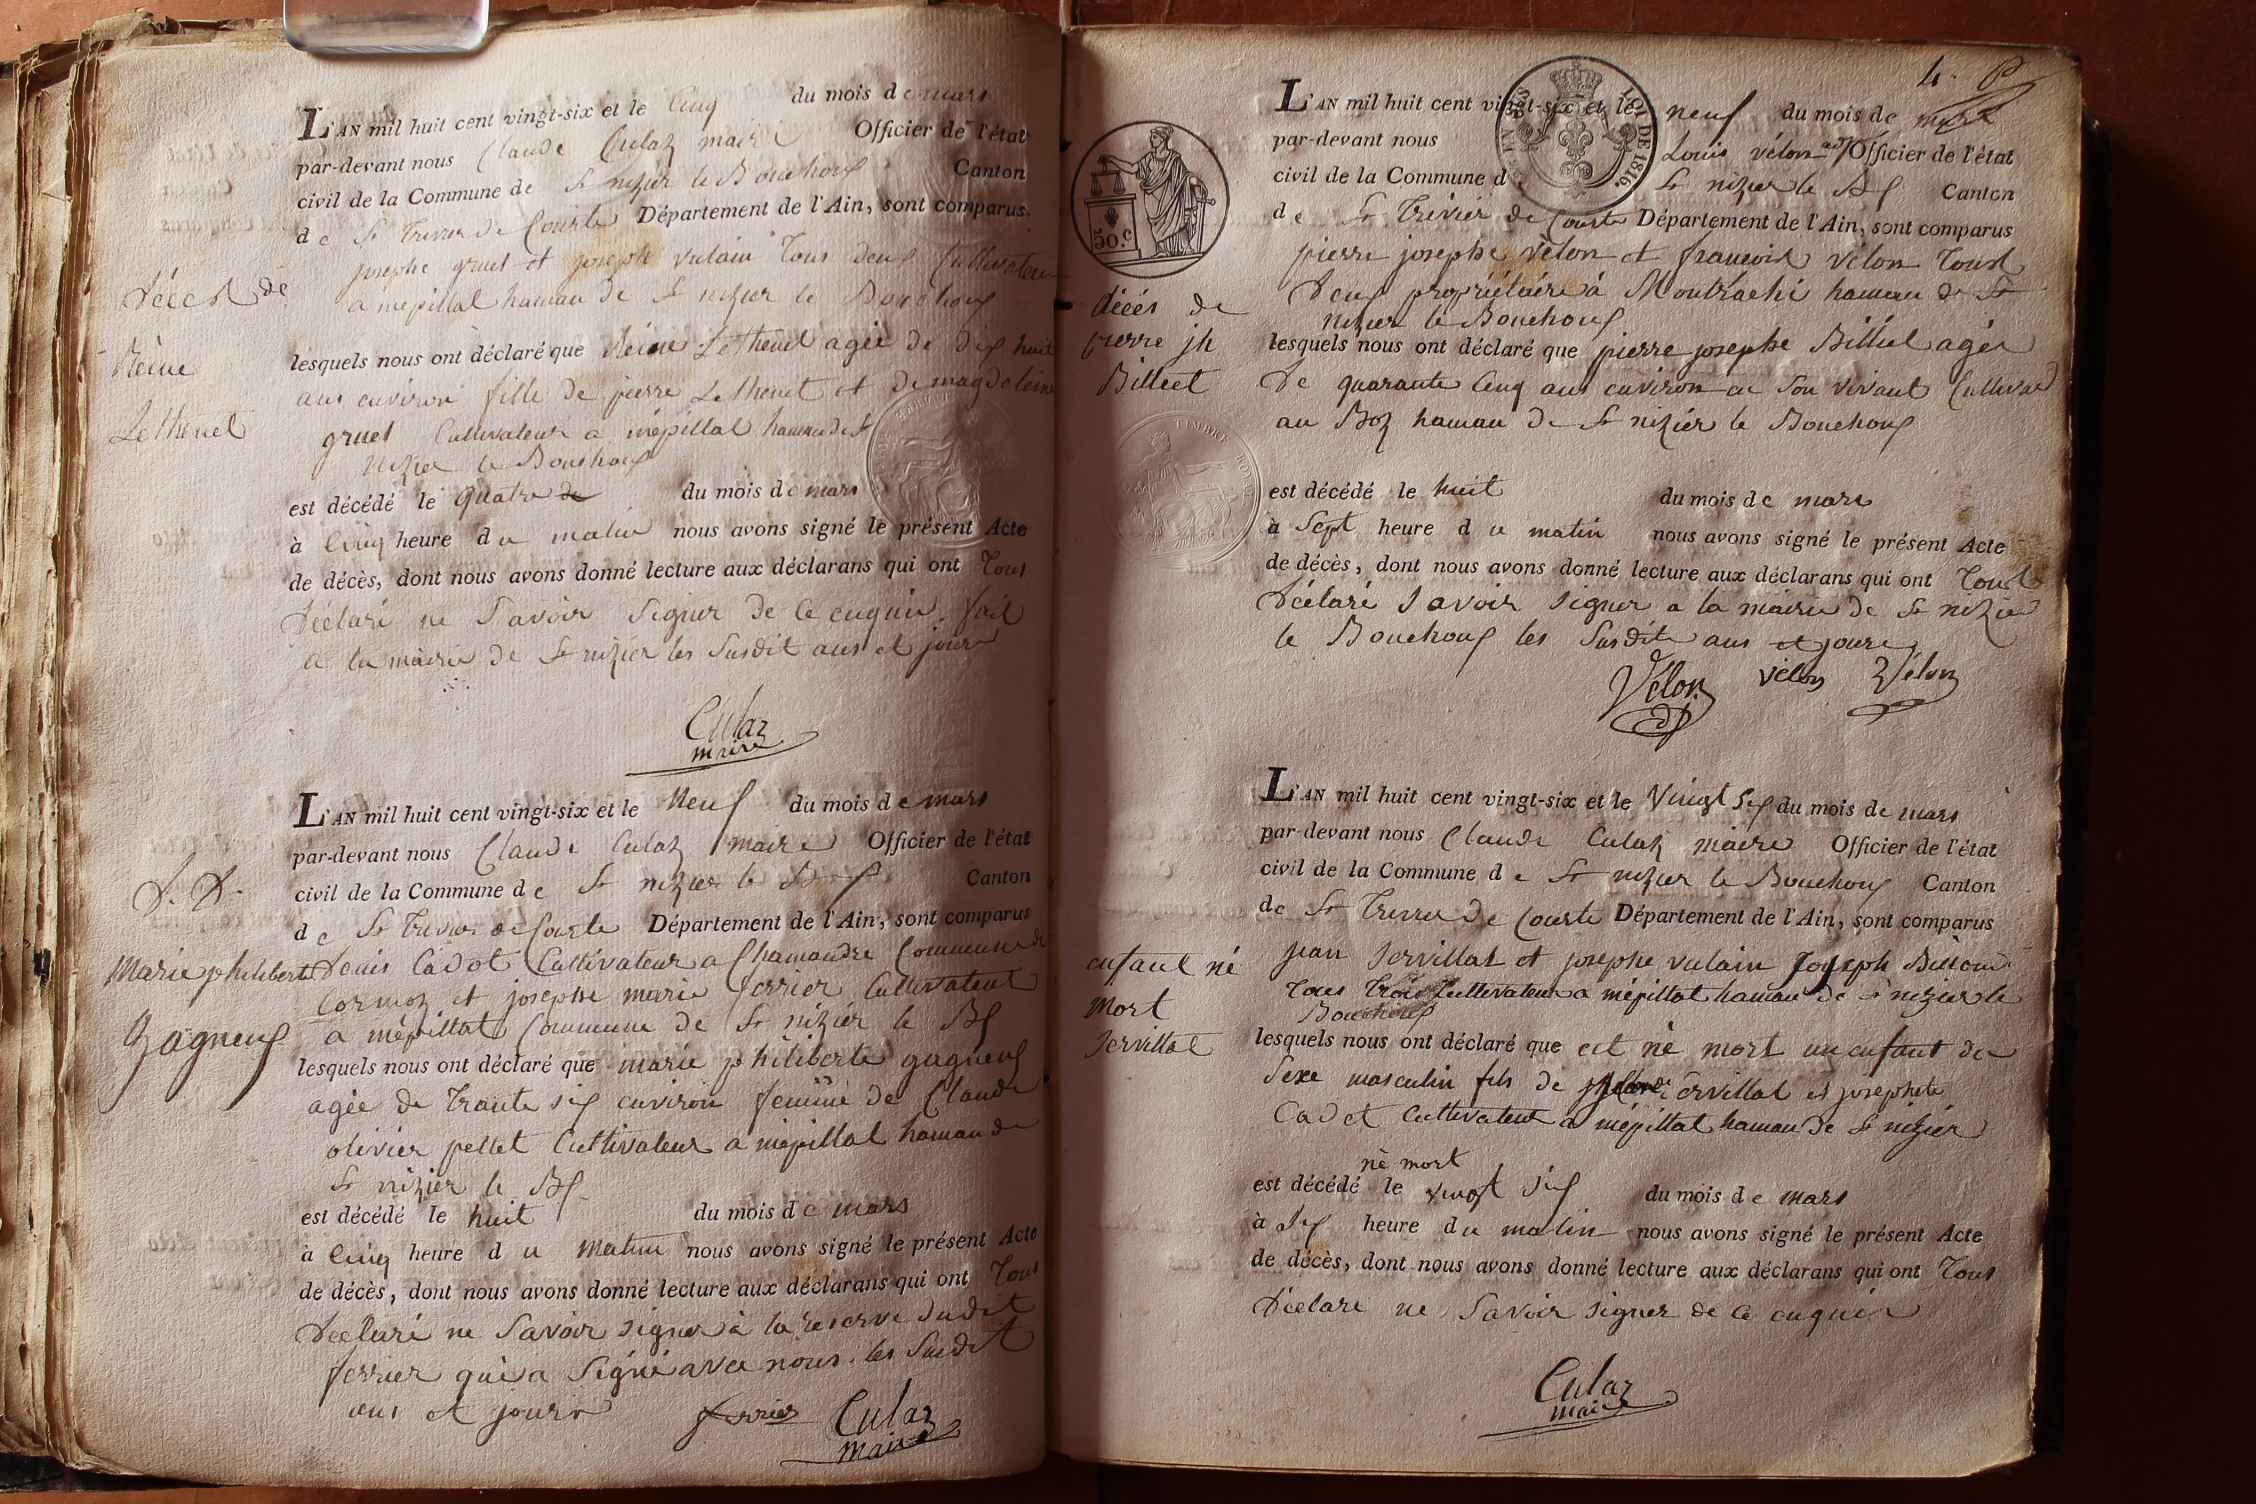 L'AN mil huit cent vingt-six et le Cinq du mois de mars
par-devant nous Claude Culaz maire Officier de l'état
civil de la Commune de St nizier le Bouchoux Canton
de St Trivier de Courte Département de l'Ain, sont comparus
josephe gruel et joseph vulain Tous deux Cultivateur
a mépillat hamau de St nizier le Bouchoux
Décès de
Reine
Lethenet
lesquels nous ont déclaré que Reine Lethenet agée de dix huit
ans environ fille de pierre Lethenet et de magdeleine
gruel Cultivateur a mépillat hamau de St
nizier le Bouchoux
est décédé le quatre de du mois de mars
à Cinq heure du matin nous avons signé le présent Acte
de décès, dont nous avons donné lecture aux déclarans qui ont Tous
Déclaré ne Savoir Signer de Ce enquis. fait
a la mairie de St nizier les Susdit ans et jour
Culaz
maire
L'AN mil huit cent vingt-six et le Neuf du mois de mars
par-devant nous Claude Culaz maire Officier de l'état
civil de la Commune de St nizier le Bx Canton
de St Trivier de Courte Département de l'Ain, sont comparus
D. D.
Marie philiberte
gagneux
Denis Cadot Cultivateur a Chamandre Commune de
Cormoz et josephe marie ferrier Cultivateur
a mépillat Commune de St nizier le Bx
lesquels nous ont déclaré que marie philiberte gagneux
agée de Trante six environ femme de Claude
olivier pellet Cultivateur a mépillat hamau de
St nizier le Bx
est décédé le huit du mois de mars
à Cinq heure du matin nous avons signé le présent Acte
de décès, dont nous avons donné lecture aux déclarans qui ont Tous
Déclaré ne Savoir signer à la reserve dudit
ferrier qui a Signé avec nous. les Susdit
ans et jour
ferrier Culaz
maire
4.
LOI DE 1816.
50.c
L'AN mil huit cent vingt-six et le neuf du mois de mars
par-devant nous Louis vélon Officier de l'état
civil de la Commune d St nizier le Bx Canton
de St Trivier de Courte Département de l'Ain, sont comparus
pierre josephe vélon et francois vélon Tous
Deux propriétaire à Montrachi hamau de St
nizier le Bouchoux
décès de
pierre jh
Billiet
lesquels nous ont déclaré que pierre josephe Billiet agée
De quarante Cinq ans environ en Son vivant Cultivat
au Boz hamau De St nizier le Bouchoux
TIMBRE ROYAL
est décédé le huit du mois de mars
à Sept heure du matin nous avons signé le présent Acte
de décès, dont nous avons donné lecture aux déclarans qui ont Tous
Déclaré Savoir signer a la mairie de St nizier
le Bouchoux les Susdite ans et jours
Vélon vélon Vélon
L'AN mil huit cent vingt-six et le Vingt Six du mois de mars
par-devant nous Claude Culaz maire Officier de l'état
civil de la Commune de St nizier le Bouchoux Canton
de St Trivier de Courte Département de l'Ain, sont comparus
enfant né
mort
Servillat
jean Servillat et josephe vulain Joseph
Tous Trois Cultivateur a mépillat hamau de St nizier le
Bouchoux
lesquels nous ont déclaré que est né mort un enfant de
Sexe masculin fils de Servillat et josephete
Cadet Cultivateur a mépillat hamau De St nizier
né mort
est décédé le vingt Six du mois de mars
à Six heure du matin nous avons signé le présent Acte
de décès, dont nous avons donné lecture aux déclarans qui ont Tous
Déclaré ne Savoir signer de Ce enquis
Culaz
maire